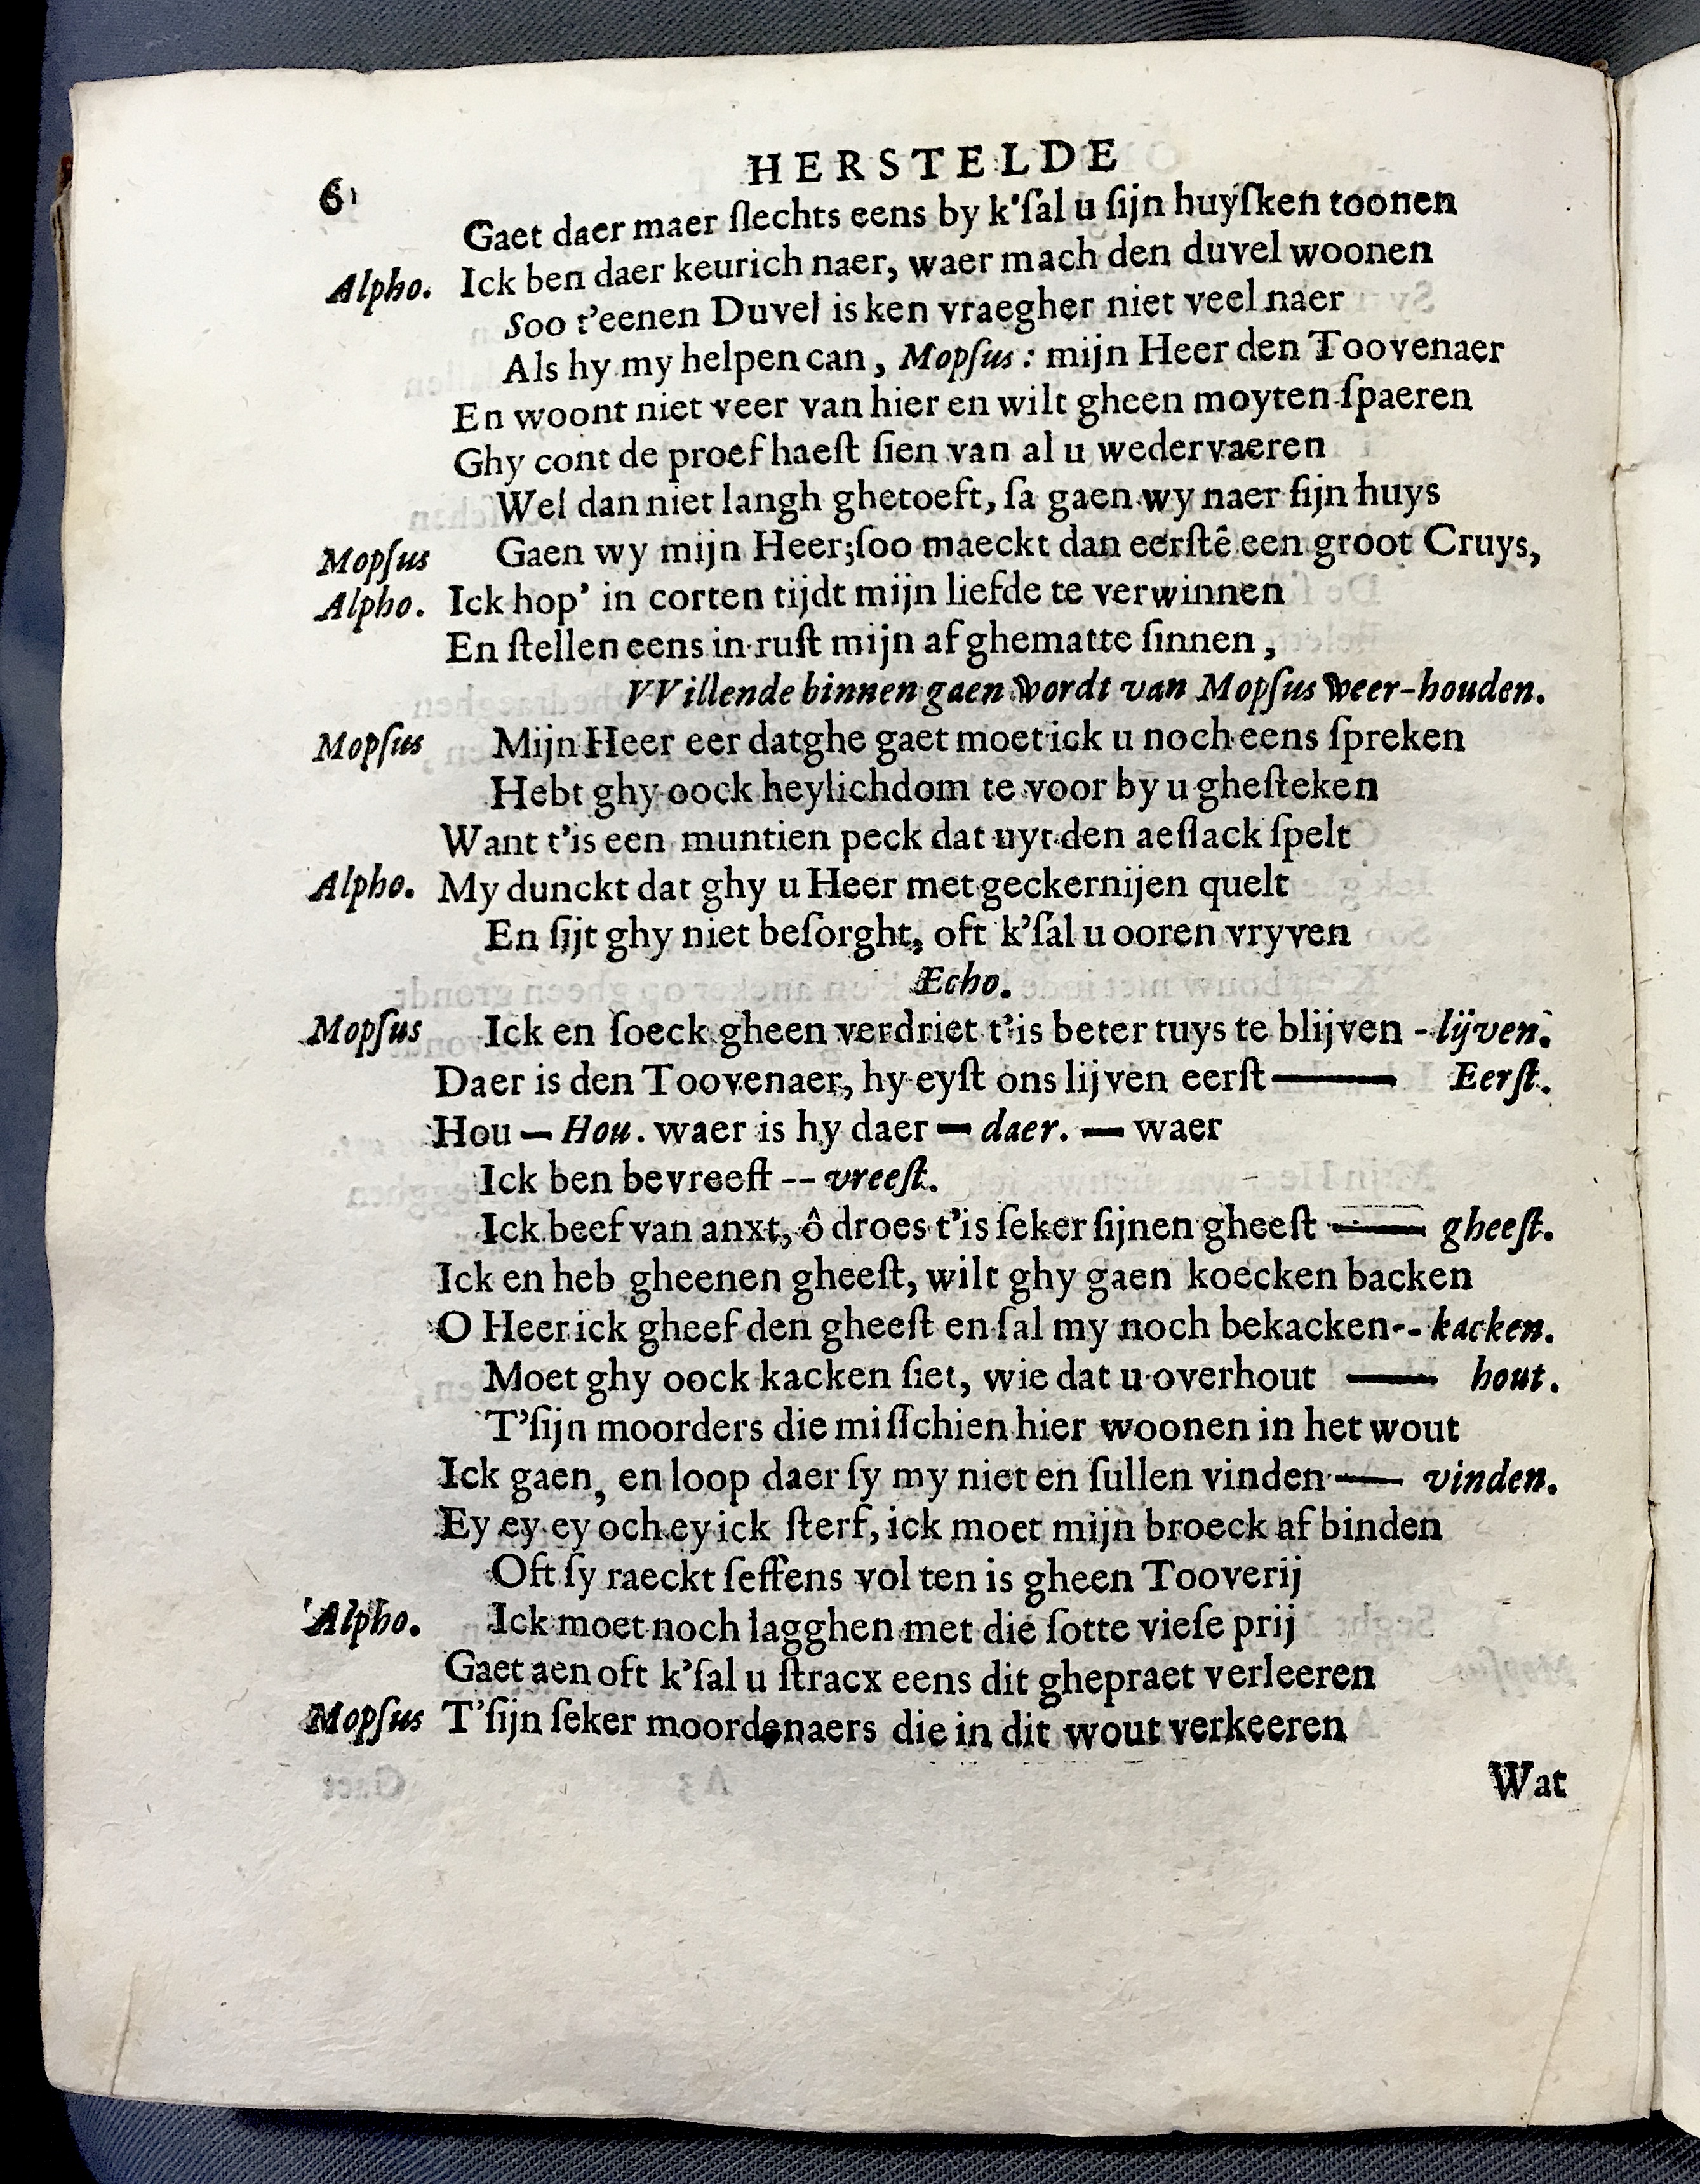 HERSTELDE
6
Gaet daer maer ſlechts eens by k'ſal u ſijn huyſken toonen
Alpho. Ick ben daer keurich naer, waer mach den duvel woonen
Soo t'eenen Duvel is ken vraegher niet veel naer
Als hy my helpen can, Mopſus: mijn Heer den Toovenaer
En woont niet veer van hier en wilt gheen moyten ſpaeren
Ghy cont de proef haeſt ſien van al u wedervaeren
Wel dan niet langh ghetoeft, ſa gaen wy naer ſijn huys
Mopſus Gaen wy mijn Heer;ſoo maeckt dan eerſtê een groot Cruys,
Alpho. Ick hop' in corten tijdt mijn liefde te verwinnen
En ſtellen eens in ruſt mijn af ghematte ſinnen,
VVillende binnen gaen wordt van Mopſus weer-houden.
Mopſus Mijn Heer eer datghe gaet moet ick u noch eens ſpreken
Hebt ghy oock heylichdom te voor by u gheſteken
Want t'is een muntien peck dat uyt den aeſlack ſpelt
Alpho. My dunckt dat ghy u Heer met geckernijen quelt
En ſijt ghy niet beſorght, oft k'ſal u ooren vryven
Echo.
Mopſus Ick en ſoeck gheen verdriet t'is beter tuys te blijven - lijven.
Daer is den Toovenaer, hy eyſt ons lijven eerſt — Eerſt.
Hou — Hou. waer is hy daer — daer. — waer
Ick ben bevreeſt -- vreeſt.
Ick beef van anxt, ô droes t'is ſeker ſijnen gheeſt — gheeſt.
Ick en heb gheenen gheeſt, wilt ghy gaen koecken backen
O Heer ick gheef den gheeſt en ſal my noch bekacken-- kacken.
Moet ghy oock kacken ſiet, wie dat u overhout — hout.
T'ſijn moorders die miſſchien hier woonen in het wout
Ick gaen, en loop daer ſy my niet en ſullen vinden — vinden.
Ey ey ey och ey ick ſterf, ick moet mijn broeck af binden
Oft ſy raeckt ſeffens vol ten is gheen Tooverij
Alpho. Ick moet noch lagghen met die ſotte vieſe prij
Gaet aen oft k'ſal u ſtracx eens dit ghepraet verleeren
Mopſus T'ſijn ſeker moordenaers die in dit wout verkeeren
Wat